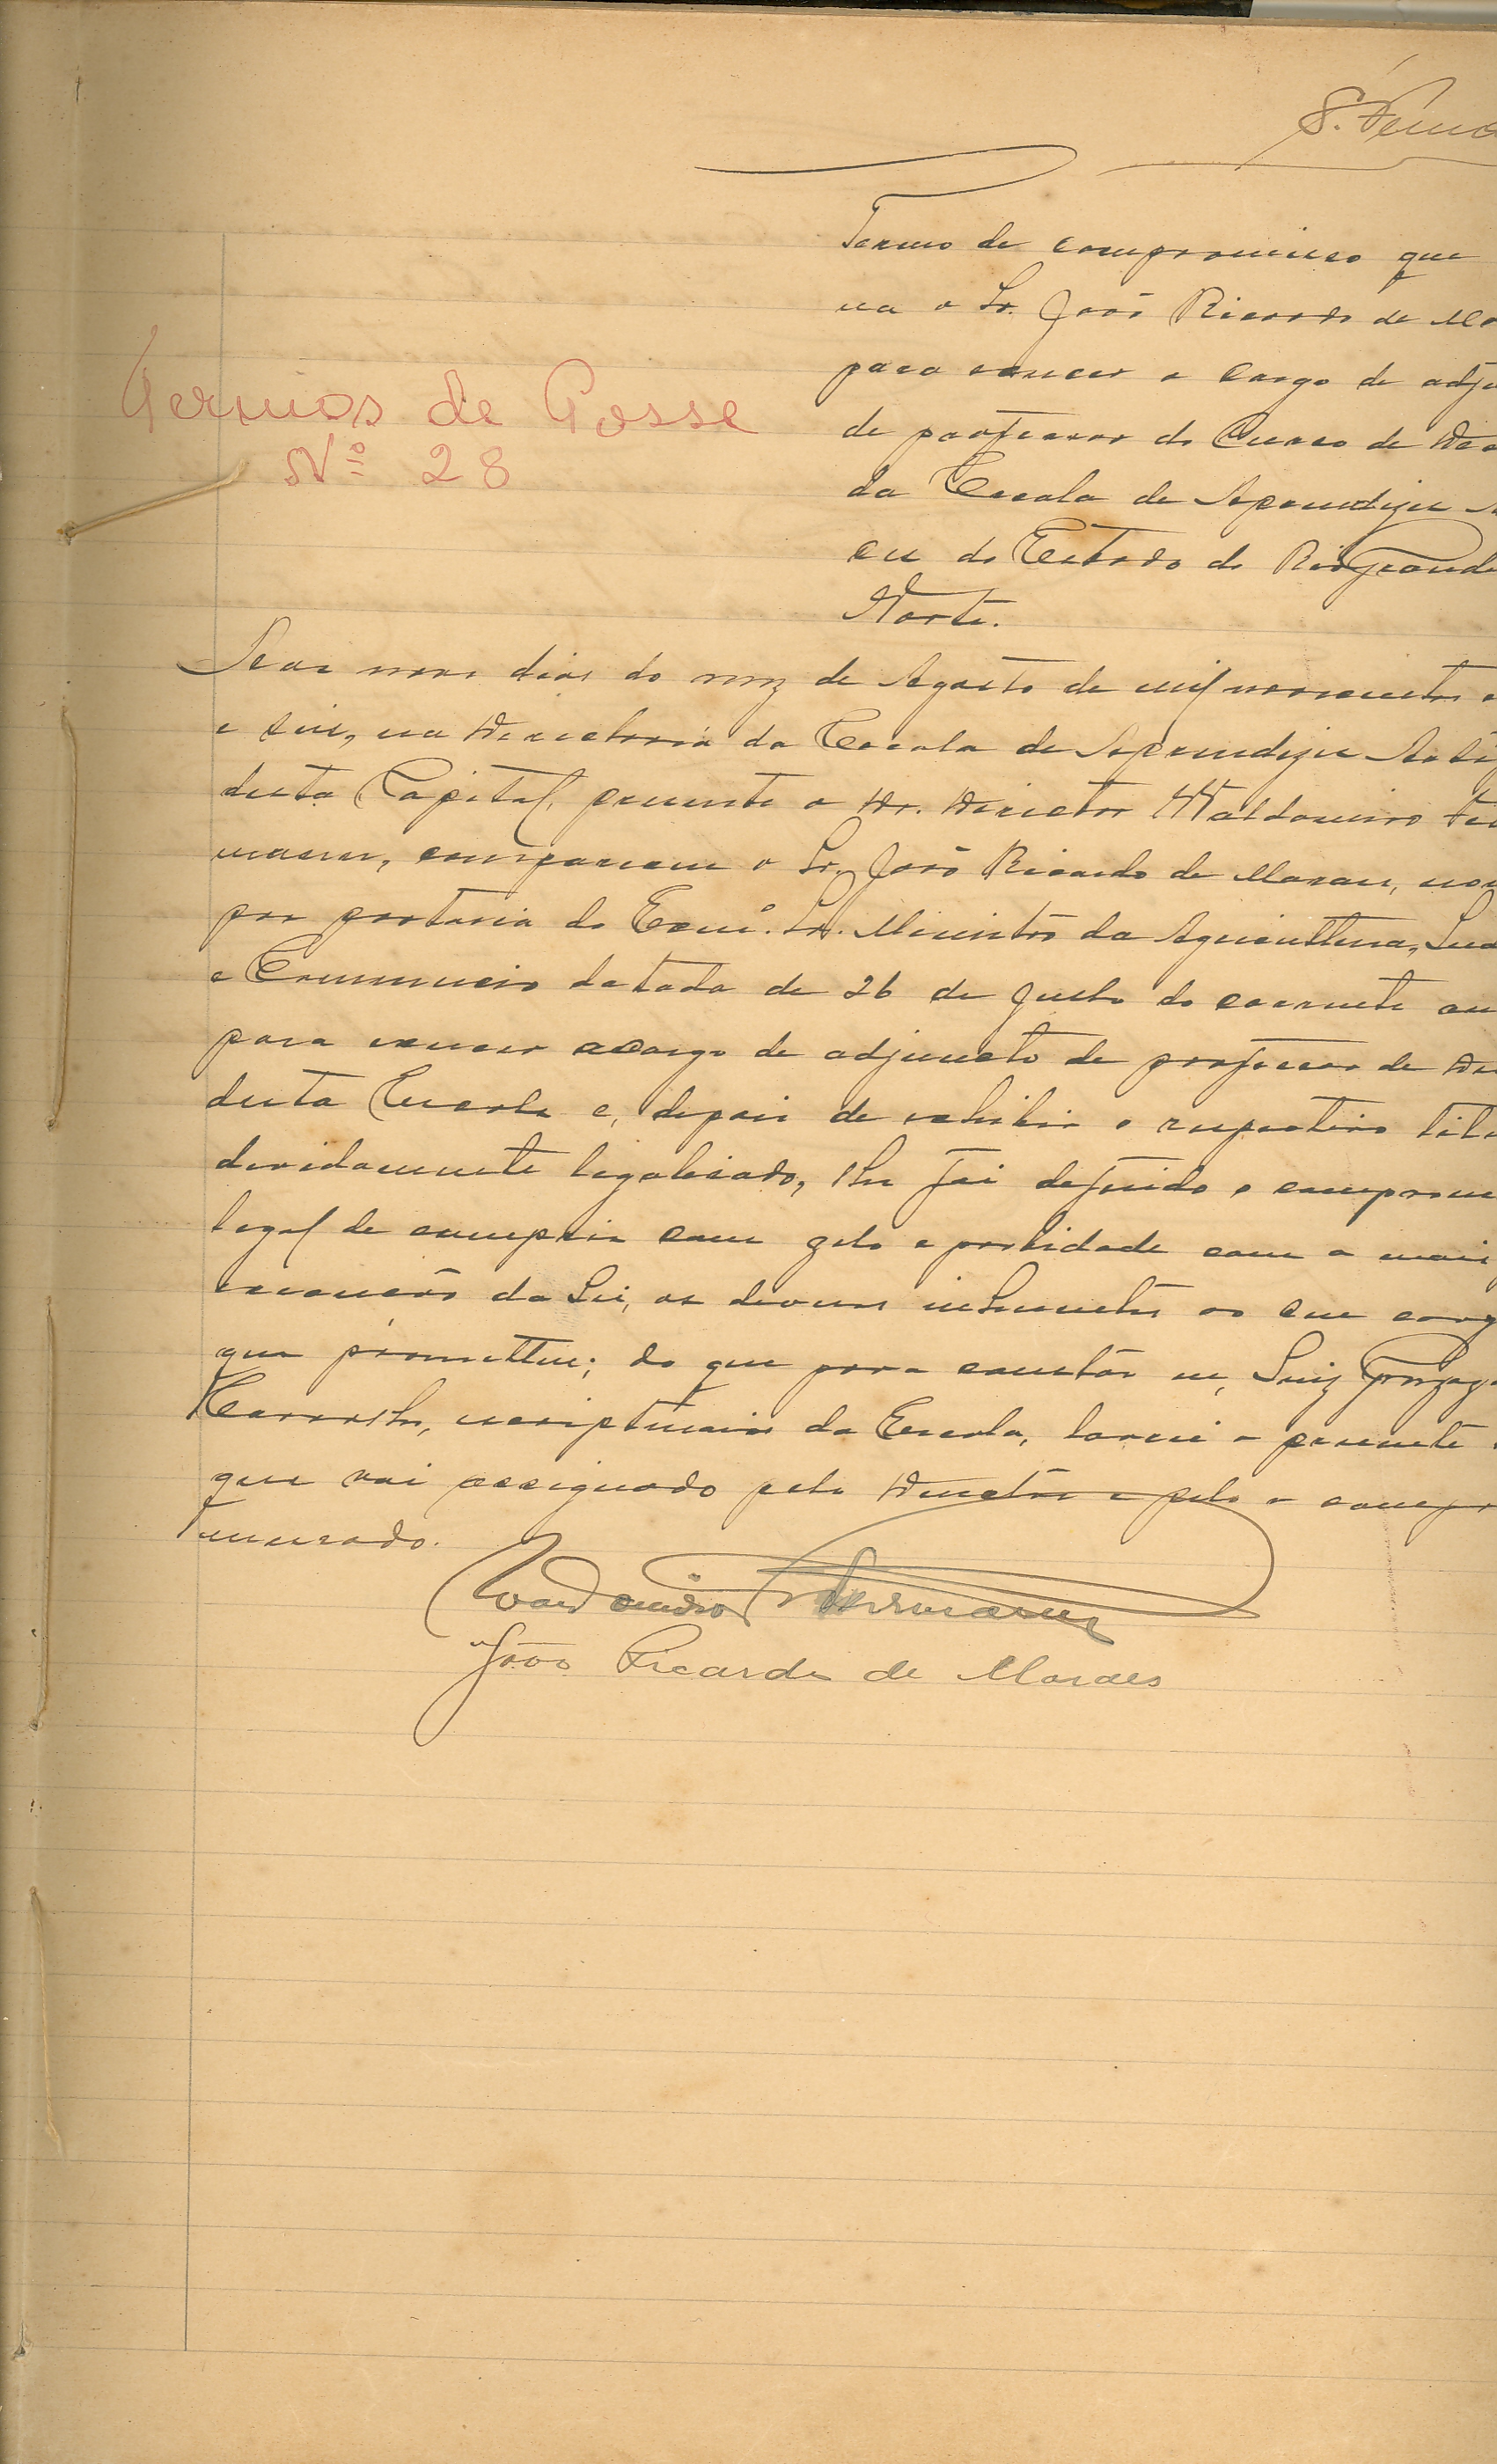 Termo de compromisso que
na o Sr. João Ricardo de Mo
para exercer o cargo de adju
de professor do Curso de Des
da Escola de Aprendizes A
ces do Estado do Rio Grande
Norte.
Termos de Posse
Nº 28
nove dias do mez de Agosto de mil novecentos e
e seis, na Directoria da Escola de Aprendizes Arti
desta Capital, presente o Dr. Director Waldomiro
compareceu o Sr. João Ricardo de Moraes, nom
por portaria do Exmº. Sr. Ministro da Agricultura, Ind
e Commercio datada de 26 de Julho do corrente an
para exercer o cargo de adjuncto de professor de De
desta Escola e, depois de exhibir o respectivo titu
devidamente legalisado, lhe foi deferido o comprom
legal de cumprir com zelo e probidade com a mais
execução da Lei, os deveres inherentes ao seu carg
que prometteu; do que para constar eu, Luiz Gonzaga
escripturario da Escola, lavrei o presente
que vai assignado pelo Director e pelo o compro
Waldomiro
João Ricardo de Moraes